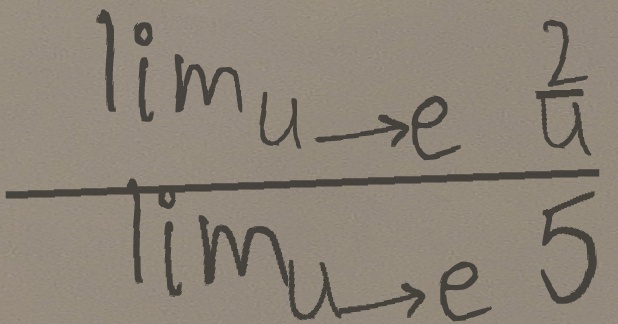 \frac{\lim_{u \rightarrow e} \frac{2}{u}}{\lim_{u \rightarrow e} 5}